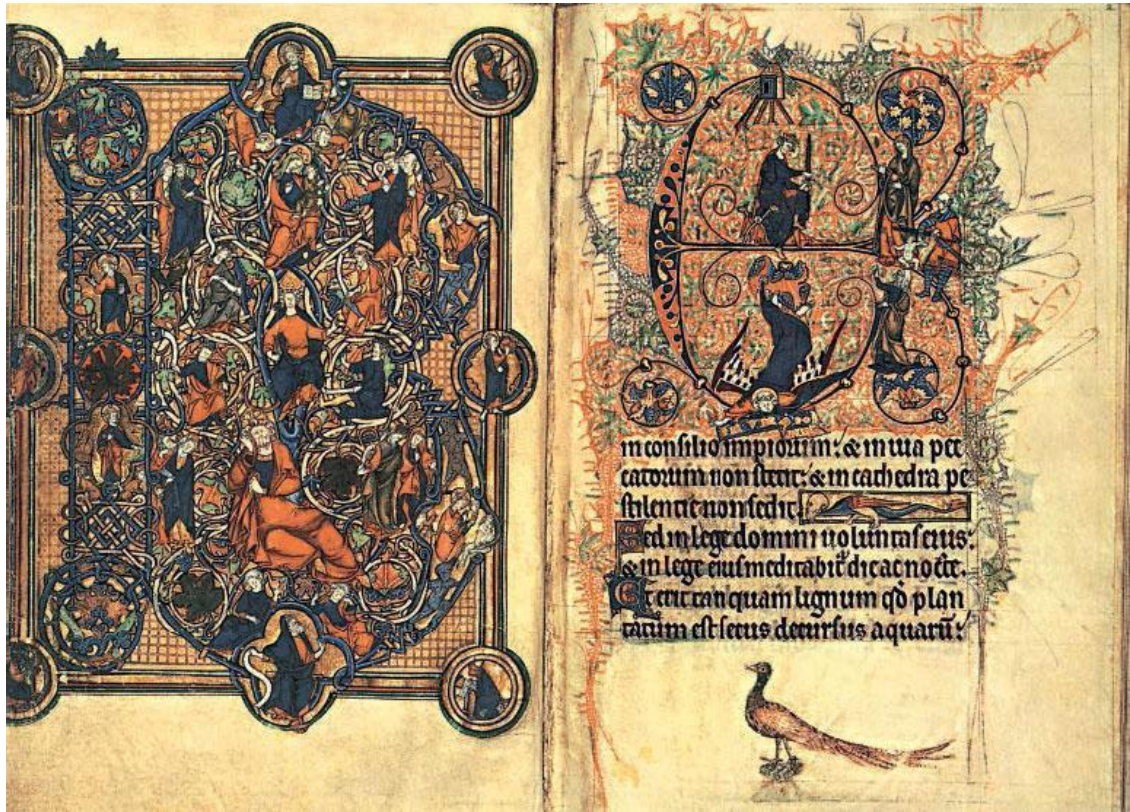 B
E
in consilio impiorum: & in uia pec
catorum non stetit: & in cathedra pe
stilentie non sedit.
Sed in lege domini uoluntas eius:
& in lege eius meditabit᷑ die ac nocte.
Et erit tanquam lignum qđ plan
tatum est secus decursus aquarū: